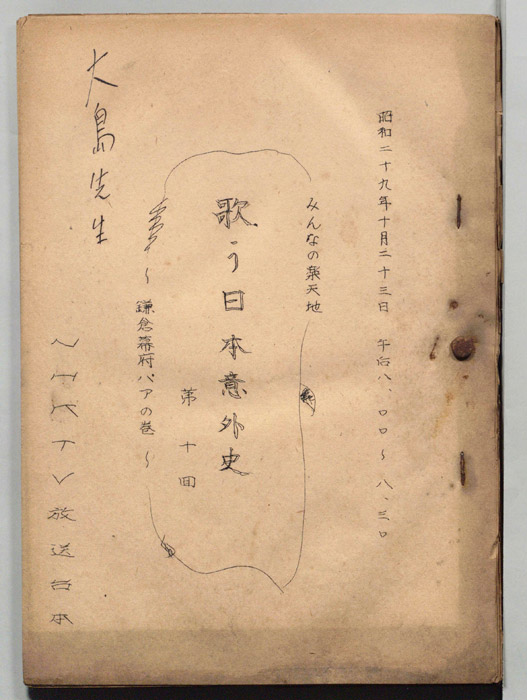 昭和二十九年十月二十三日 午后八、〇〇〜八、三〇
みんなの楽天地
歌う日本意外史
第十回
〜鎌倉幕府パアの巻〜
大島先生
NHKTV放送台本